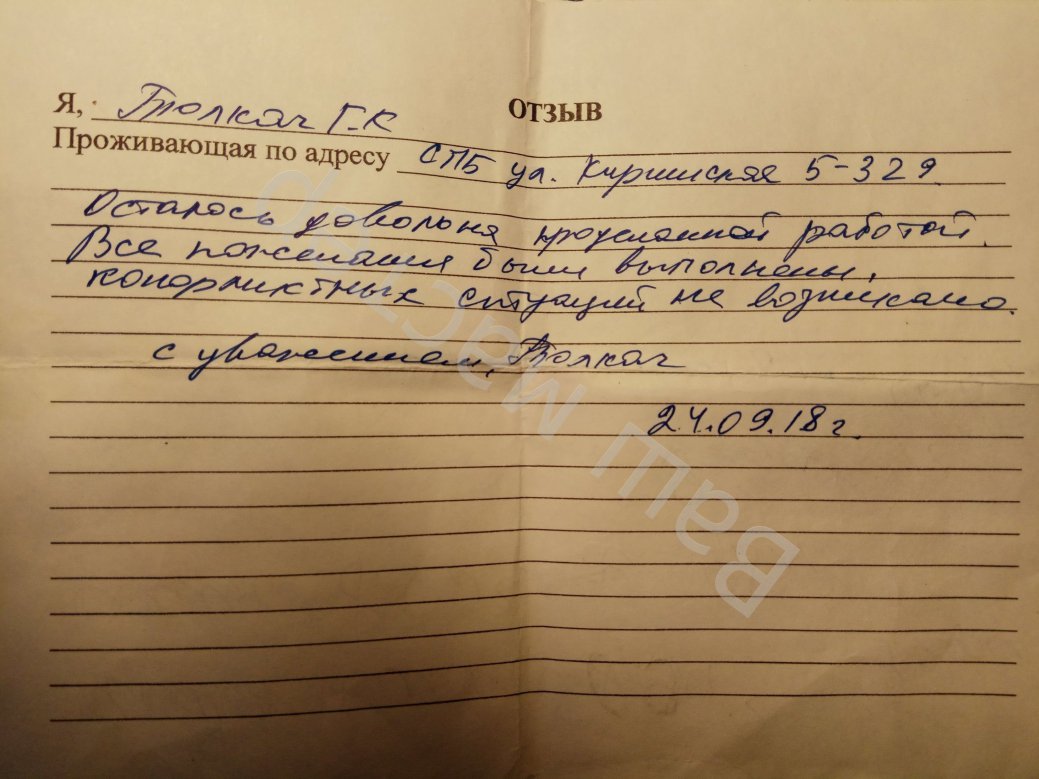 ОТЗЫВ
Я, Толкач Г.К
Проживающая по адресу СПБ ул. Киришская 5-329.
Осталось довольна проделанной работой.
Все пожелания были выполнены.
конфликтных ситуаций не возникало.
с уважением, Толкач
24.09.18 г.
Ваш мастер